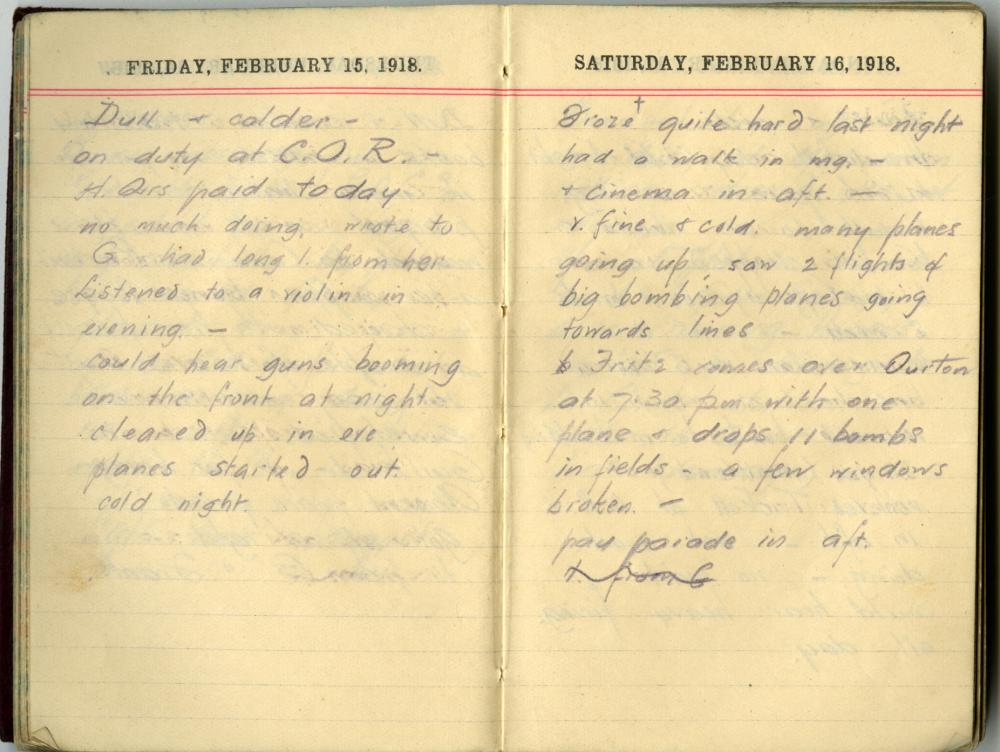 FRIDAY, FEBRUARY 15, 1918.
Dull + colder -
on duty at C.O.R. -
H. Qrs paid today
no much doing, wrote to
G had long l. from her
listened to a violin in
evening -
could hear guns booming
on the front at night
cleared up in eve
planes started out.
cold night.
SATURDAY, FEBRUARY 16, 1918.
Froze quite hard last night
had a walk in mg. -
+ cinema in aft. -
v. fine & cold. many planes
going up, saw 2 flights of
big bombing planes going
towards lines
Fritz comes over Ourton
at 7.30 pm with one
plane & drops 11 bombs
in fields a few windows
broken. -
pay parade in aft.
from G